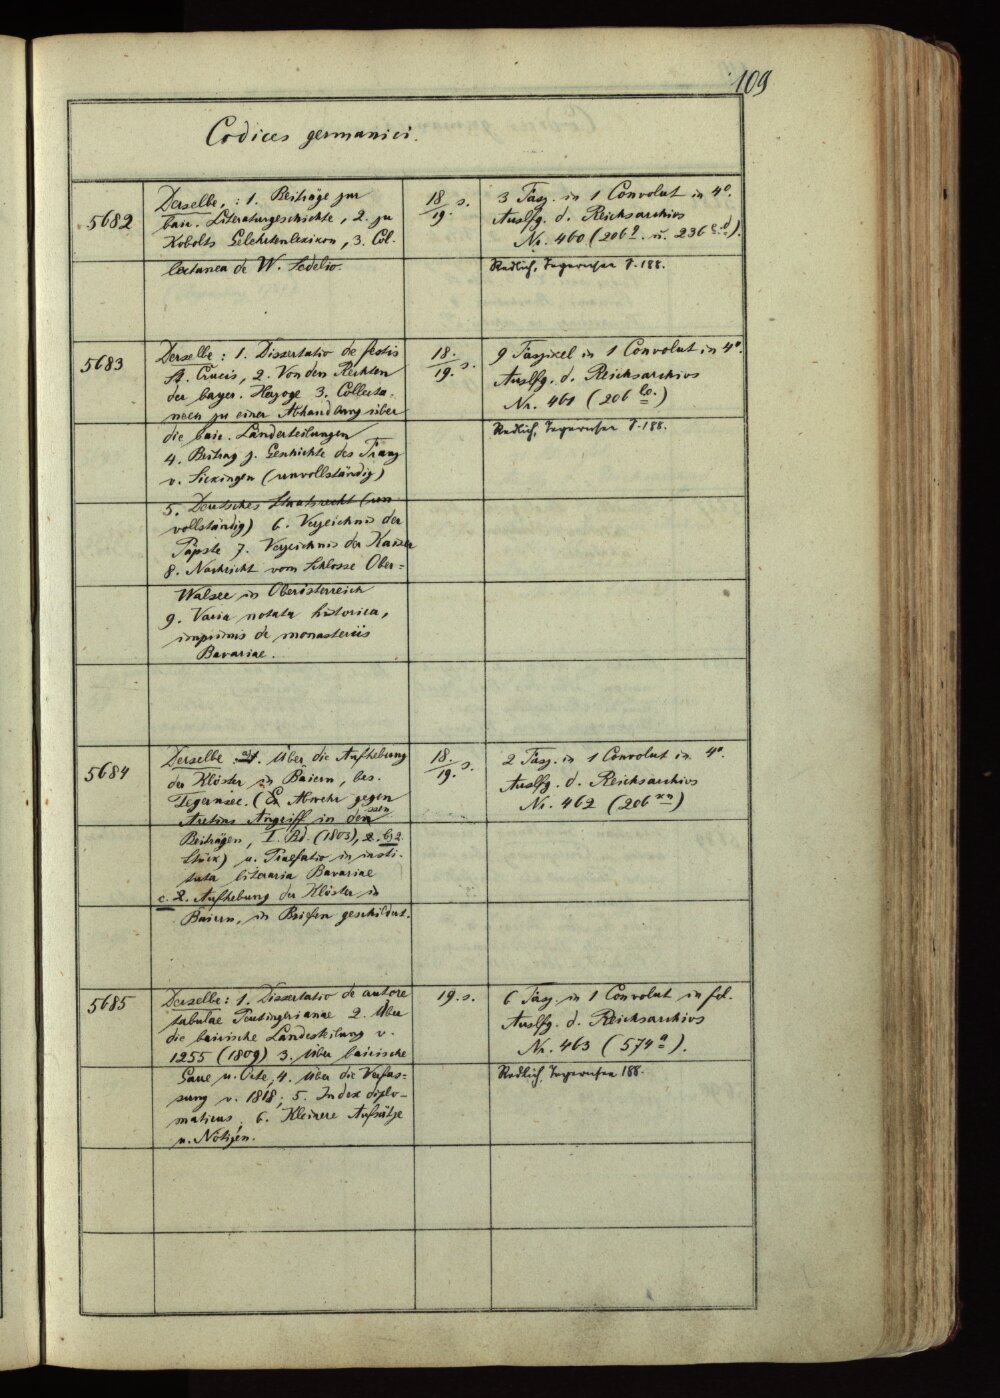 109
Codices germanici.
5682
Derselbe, : 1. Beiträge zur
bair. Literaturgeschichte, 2. zu
Kobolts Gelehrtenlexikon, 3. Col-
lectanea de W. Sedelio.
18./19. s.
3 Fasz. in 1 Convolut in 4°.
Auslfg. d. Reichsarchivs
Nr. 460 (206 u. 236).
Redlich, Tegernsee S. 188.
5683
Derselbe: 1. Dissertatio de festis
St. Crucis, 2. Von den Rechten
der bayer. Herzoge 3. Collecta-
neen zu einer Abhandlung über
die bair. Länderteilungen
4. Beitrag z. Geschichte des Franz
v. Sickingen (unvollständig)
5. Deutsches Staatsrecht (un
vollständig) 6. Verzeichnis der
Päpste 7. Verzeichnis der Kaiser
8. Nachricht vom Schlosse Ober=
Walsee in Oberösterreich
9. Varia notata historica,
imprimis de monasteriis
Bavariae.
18./19. s.
9 Faszikel in 1 Convolut in 4°.
Auslfg. d. Reichsarchivs
Nr. 461 (206)
Redlich, Tegernsee S. 188.
5684
Derselbe Über die Aufhebung
der Klöster in Baiern, bes.
Tegernsee. (Abwehr gegen
Aretins Angriff in dessen
Beiträgen, I. Bd. (1803), 2.
Stück) u. Praefatio in insti-
tuta literaria Bavariae
c. 2. Aufhebung der Klöster in
Baiern, in Briefen geschildert.
18./19. s.
2 Fasz. in 1 Convolut in 4°.
Auslfg. d. Reichsarchivs
Nr. 462 (206)
5685
Derselbe: 1. Dissertatio de autore
tabulae Peutingerianae 2. Über
die bairische Landesteilung v.
1255 (1809) 3. Über bairische
Gaue u. Orte, 4. Über die Verfas=
sung v. 1818; 5. Index diplo-
maticus, 6. Kleinere Aufsätze
u. Notizen.
19. s.
6 Fasz. in 1 Convolut in fol.
Auslfg. d. Reichsarchivs
Nr. 463 (574a).
Redlich, Tegernsee 188.